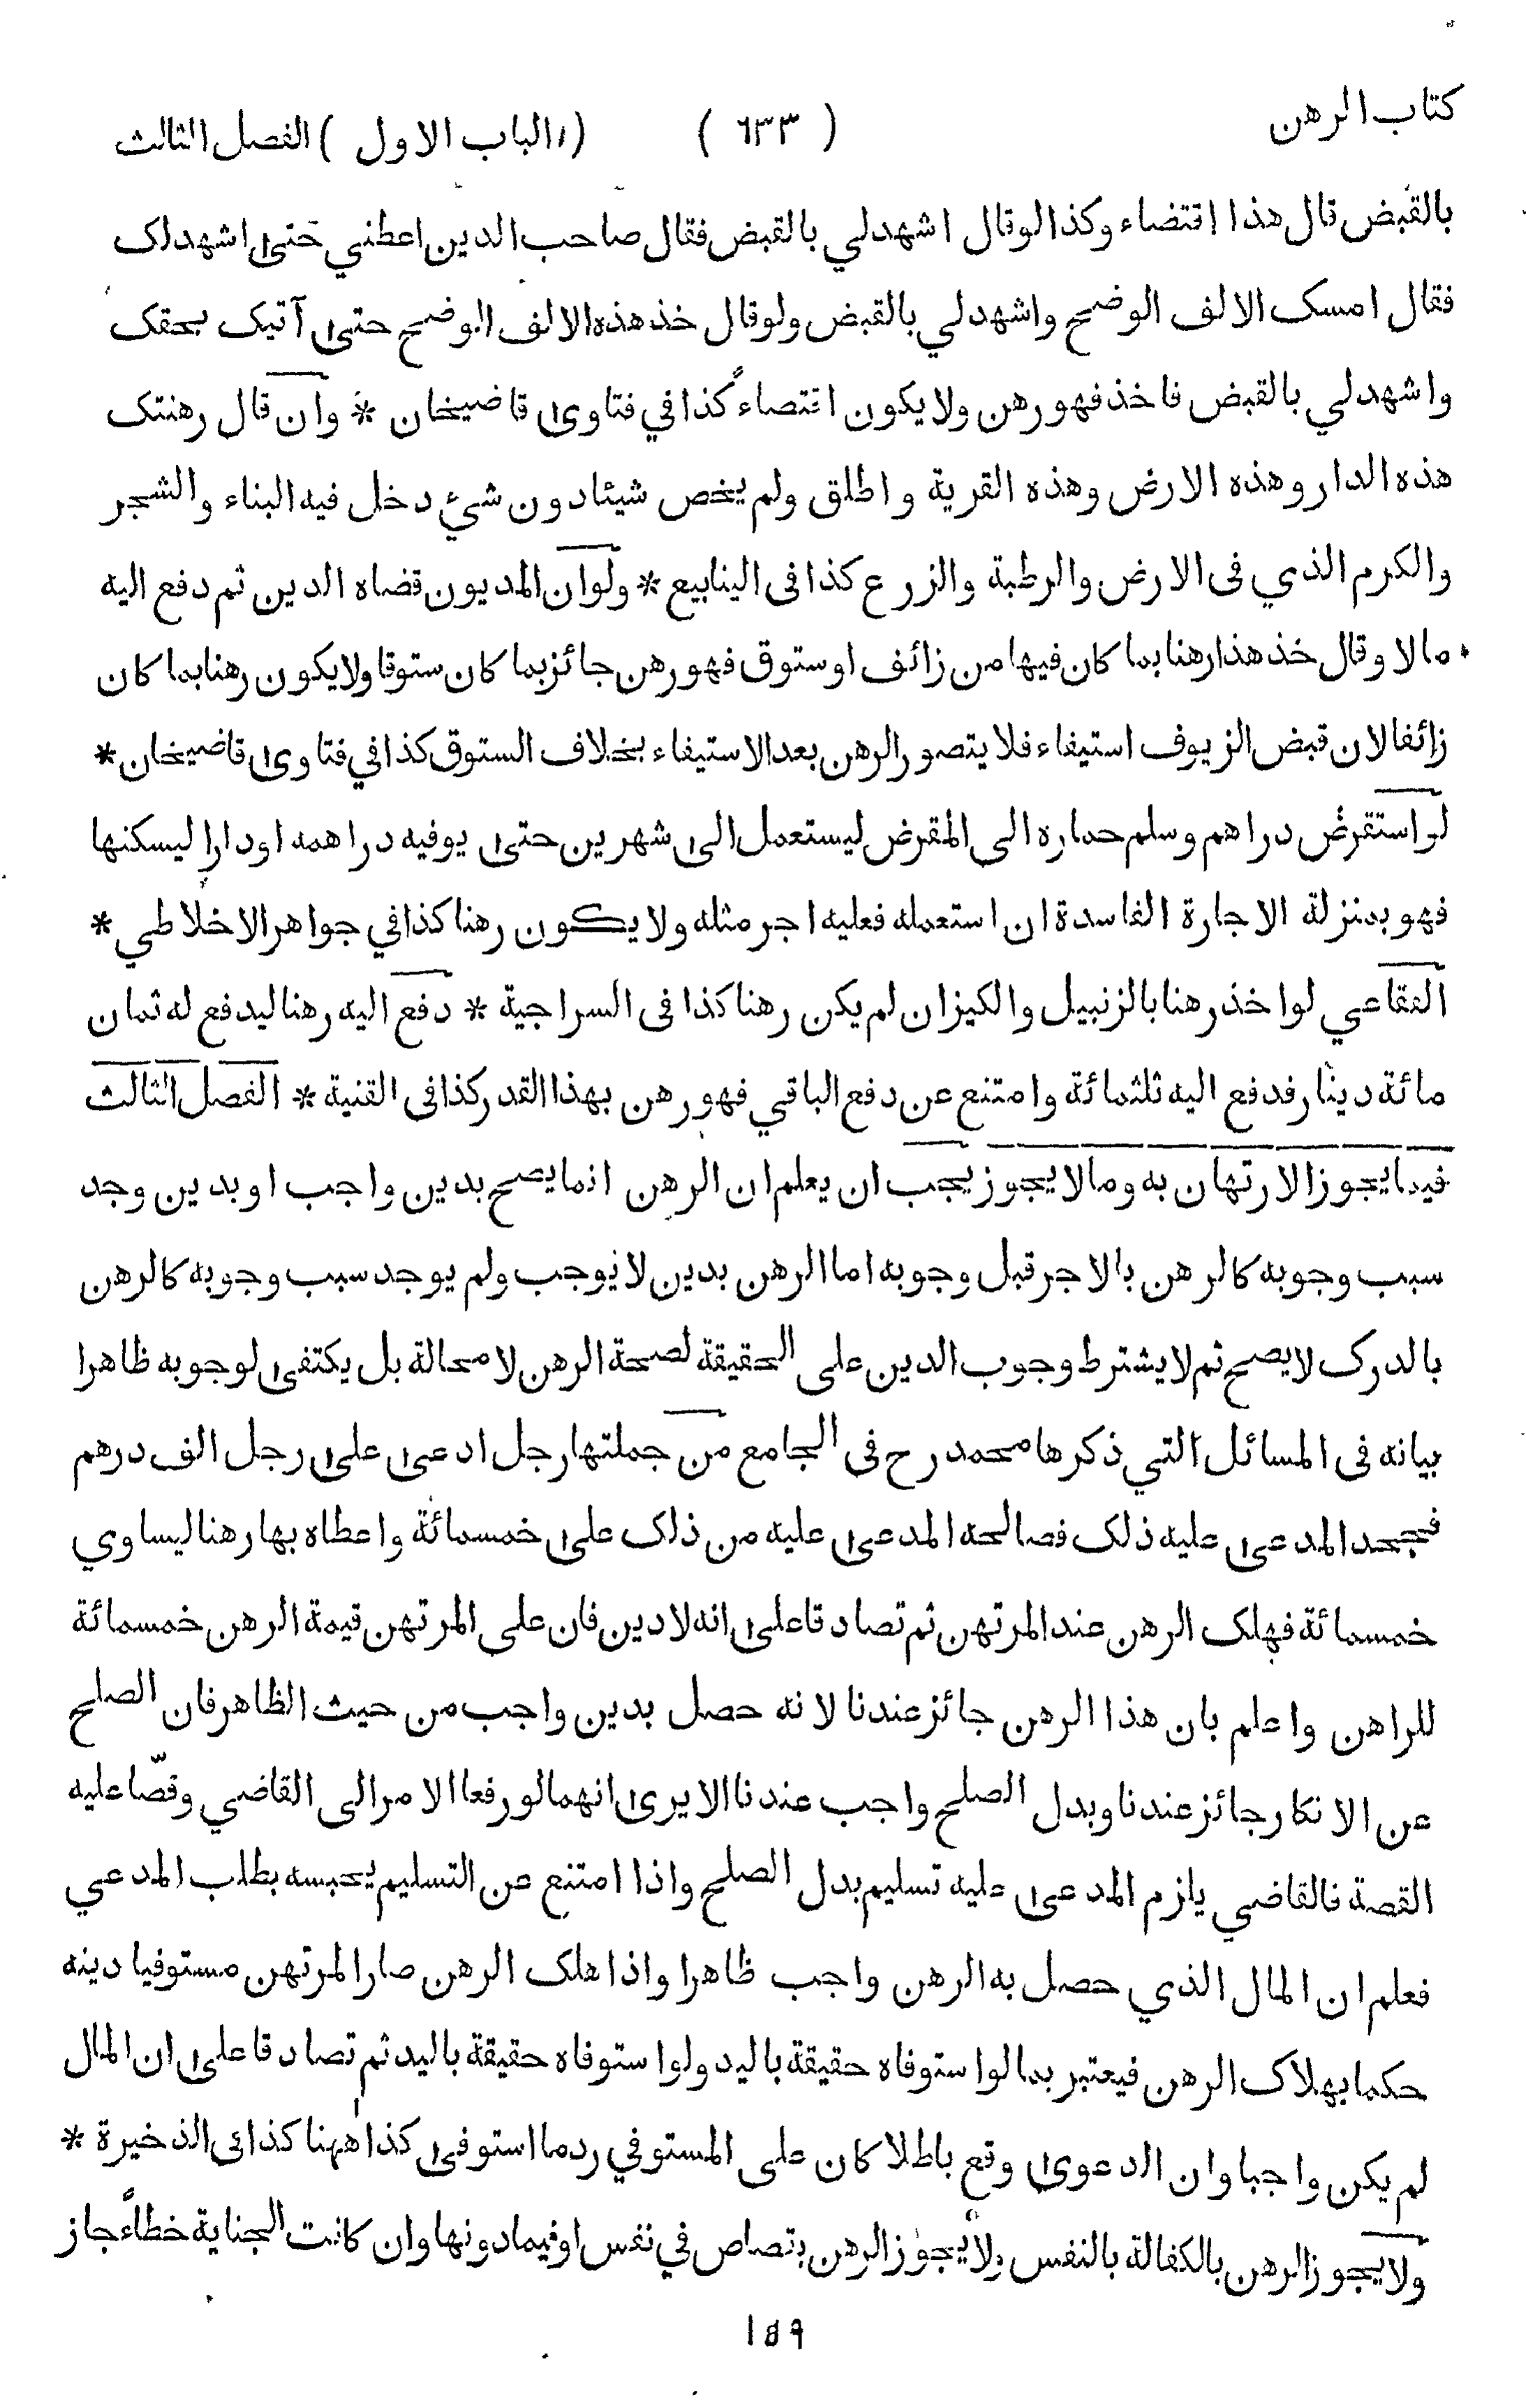 كتاب الرهن ( ٦٣٣ ) ( الباب الاول ) الفصل الثالث
بالقبض قال هذا اقتضاء وكذا لوقال اشهد لي بالقبض فقال صاحب الدين اعطني حتى اشهد لك
فقال امسك الالف الوضح واشهد لي بالقبض ولو قال خذ هذه الالف الوضح حتى آتيك بحقك
واشهد لي بالقبض فاخذ فهو رهن ولا يكون اقتضاءً كذا في فتاوى قاضيخان * وان قال رهنتك
هذه الدار وهذه الارض وهذه القرية واطلق ولم يخص شيئا دون شيء دخل فيه البناء والشجر
والكرم الذي في الارض والرطبة والزرع كذا في الينابيع * ولو ان المديون قضاه الدين ثم دفع اليه
مالا وقال خذ هذا رهنا بما كان فيها من زائف او ستوق فهو رهن جائز بما كان ستوقا ولا يكون رهنا بما كان
زائفا لان قبض الزيوف استيفاء فلا يتصور الرهن بعد الاستيفاء بخلاف الستوق كذا في فتاوى قاضيخان *
لو استقرض دراهم وسلم حماره الى المقرض ليستعمل الى شهرين حتى يوفيه دراهمه او دارا ليسكنها
فهو بمنزلة الاجارة الفاسدة ان استعمله فعليه اجر مثله ولا يكون رهنا كذا في جواهر الاخلاطي *
الفقاعي لو اخذ رهنا بالزنبيل والكيزان لم يكن رهنا كذا في السراجية * دفع اليه رهنا ليدفع له ثمان
مائة دينار فدفع اليه ثلثمائة وامتنع عن دفع الباقي فهو رهن بهذا القدر كذا في القنية * الفصل الثالث
فيما يجوز الارتهان به وما لا يجوز يجب ان يعلم ان الرهن انما يصح بدين واجب او بدين وجد
سبب وجوبه كالرهن بالاجر قبل وجوبه اما الرهن بدين لا يوجب ولم يوجد سبب وجوبه كالرهن
بالدرك لا يصح ثم لا يشترط وجوب الدين على الحقيقة لصحة الرهن لا محالة بل يكتفى لوجوبه ظاهرا
بيانه في المسائل التي ذكرها محمد رح في الجامع من جملتها رجل ادعى على رجل الف درهم
فجحد المدعى عليه ذلك فصالحه المدعى عليه من ذلك على خمسمائة واعطاه بها رهنا ليساوي
خمسمائة فهلك الرهن عند المرتهن ثم تصادقا على انه لا دين فان على المرتهن قيمة الرهن خمسمائة
للراهن واعلم بان هذا الرهن جائز عندنا لانه حصل بدين واجب من حيث الظاهر فان الصلح
عن الانكار جائز عندنا وبدل الصلح واجب عندنا الا يرى انهما لو رفعا الامر الى القاضي وقصّا عليه
القصة فالقاضي يلزم المدعى عليه تسليم بدل الصلح واذا امتنع عن التسليم يحبسه بطلب المدعي
فعلم ان المال الذي حصل به الرهن واجب ظاهرا واذا هلك الرهن صار المرتهن مستوفيا دينه
حكما بهلاك الرهن فيعتبر بما لو استوفاه حقيقة باليد ولو استوفاه حقيقة باليد ثم تصادقا على ان المال
لم يكن واجبا وان الدعوى وقع باطلا كان على المستوفي رد ما استوفى كذا ههنا كذا في الذخيرة *
ولا يجوز الرهن بالكفالة بالنفس ولا يجوز الرهن بقصاص في نفس او فيما دونها وان كانت الجناية خطاءً جاز
١٥٩